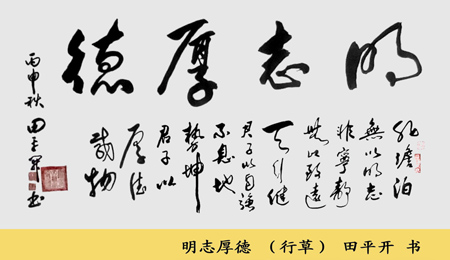 明志厚德
非澹泊
無以明志
非寧靜
無以致遠
天行健
君子以自強
不息地
勢坤
君子以
厚德
載物
丙申秋
田平开书
明志厚德 （行草） 田平开 书